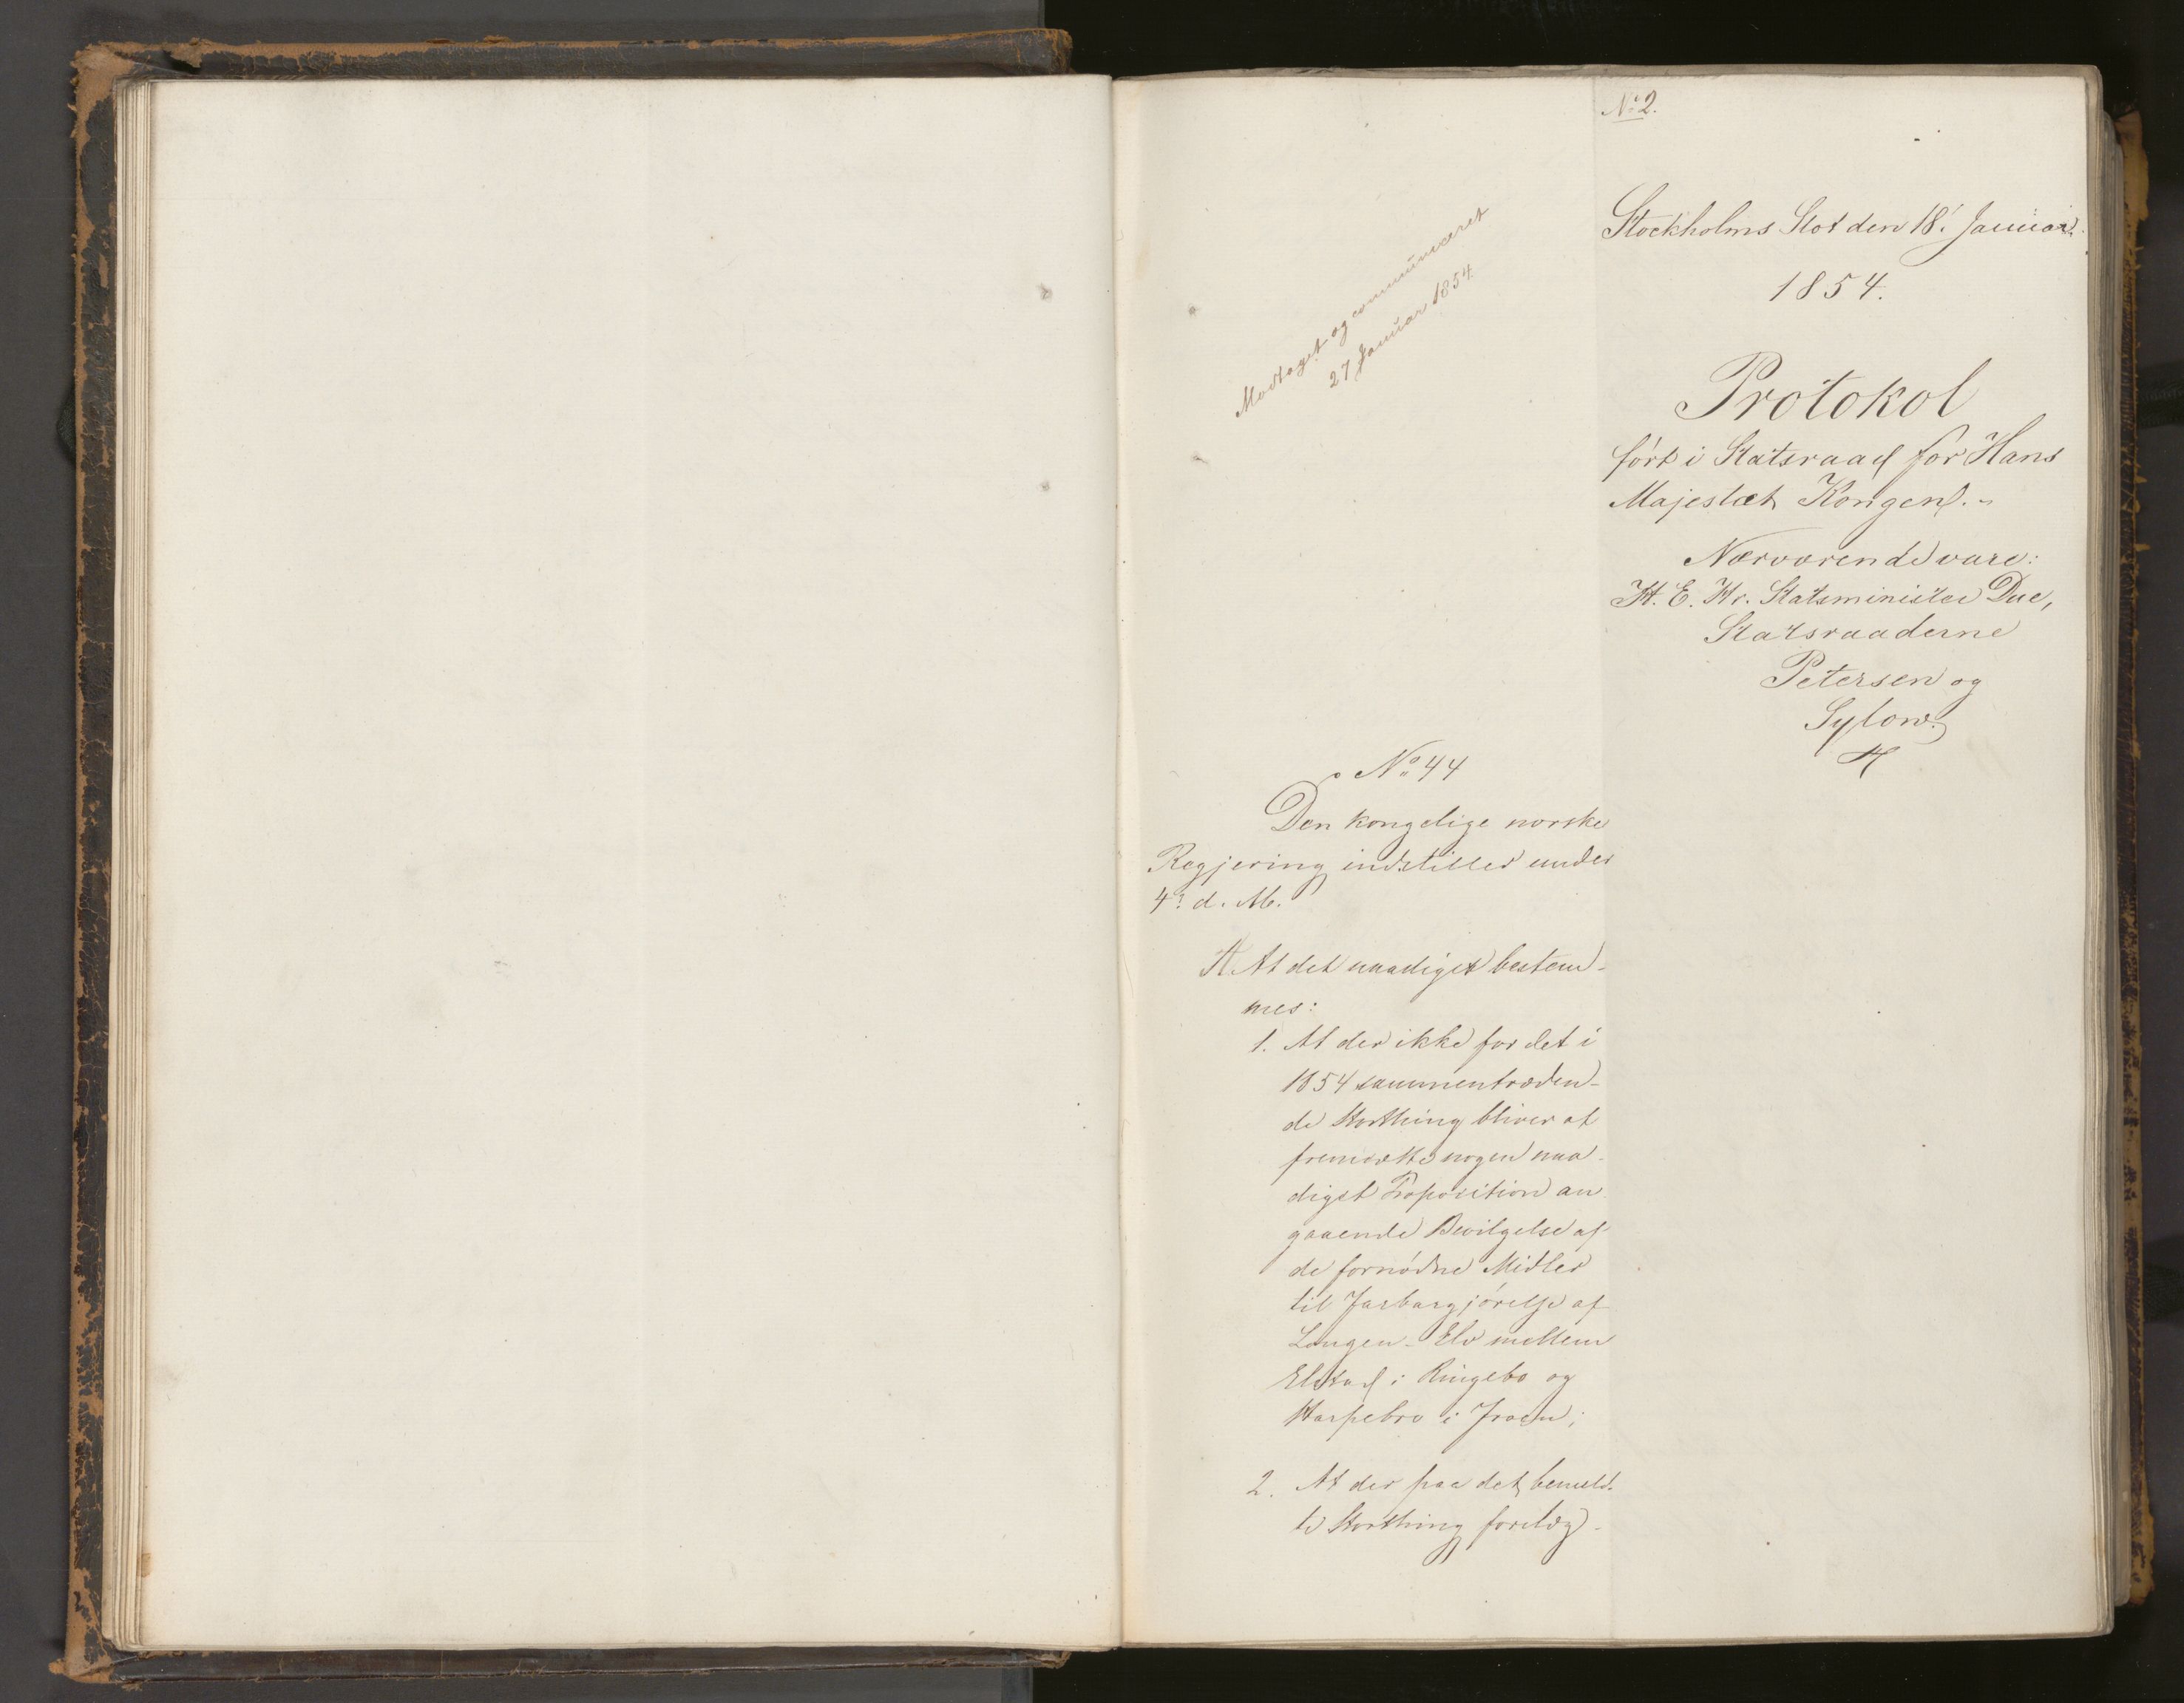 No 2.
Stockholms Slot den 18. Januar
1854.
Protokol
ført i Statsraad for Hans
Majestæt Kongen.
Nærværende vare:
H. E. Hr. Statsminister Due,
Statsraaderne
Petersen og
Sylow.
Modtaget og communiceret
27 Januar 1854.
No 44
Den kongelige norske
Regjering indstiller under
4. d. M.
A. At det naadigst bestem-
mes:
1. At der ikke for det i
1854 sammentræden-
de Storthing bliver at
fremsætte nogen naa-
digst Proposition an
gaaende Bevilgelse af
de fornødne Midler
til Farbargjørelse af
Lougen-Elv mellem
Elstad i Ringebo og
Harpebro i Froen;
2. At der paa det bemeld-
te Storthing forelæg-